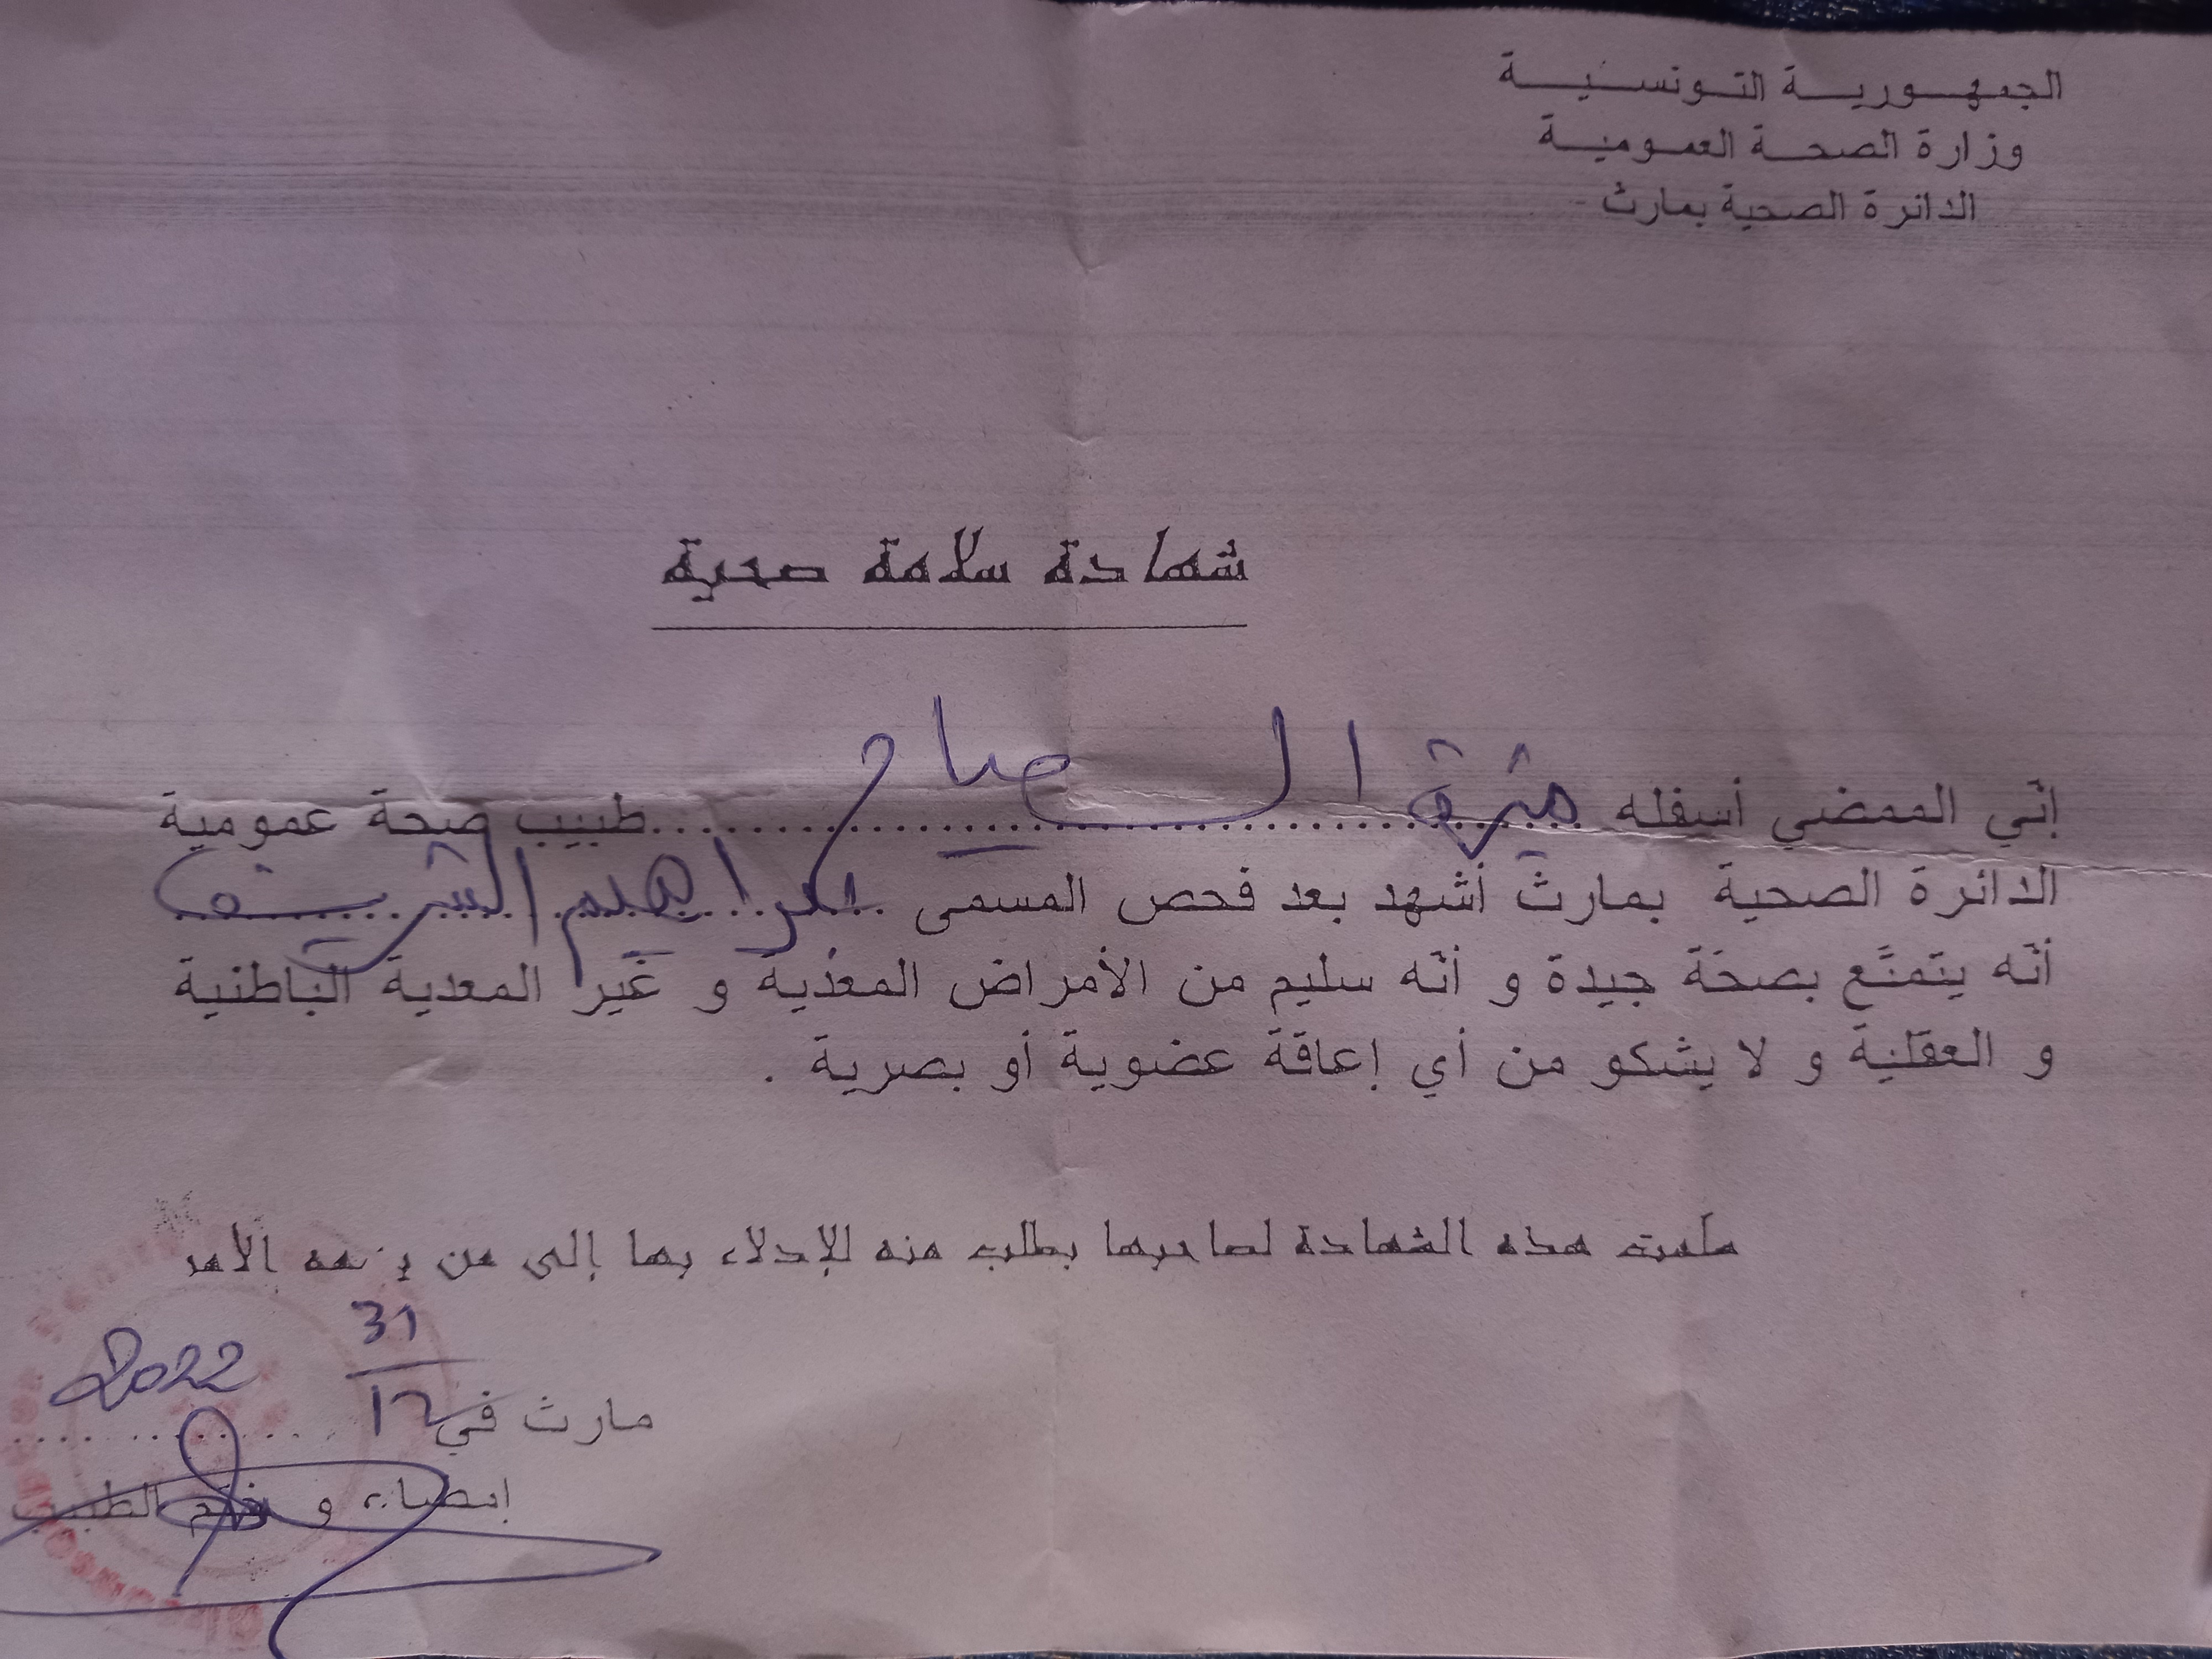 الجمهورية التونسية
وزارة الصحة العمومية
الدائرة الصحية بمارث
شهادة سلامة صحية
إنّي الممضي أسفله ........ طبيب صحة عمومية
الدائرة الصحية بمارث أشهد بعد فحص المسمى ابراهيم الشريف
أنّه يتمتّع بصحّة جيدة و أنّه سليم من الأمراض المعدية و غير المعدية الباطنية
و العقلية و لا يشكو من أي إعاقة عضوية أو بصرية .
سلّمت هذه الشهادة لصاحبها بطلب منه للإدلاء بها إلى من يهمه الأمر
مارث في 31/12 2022
إمضاء و ختم الطبيب